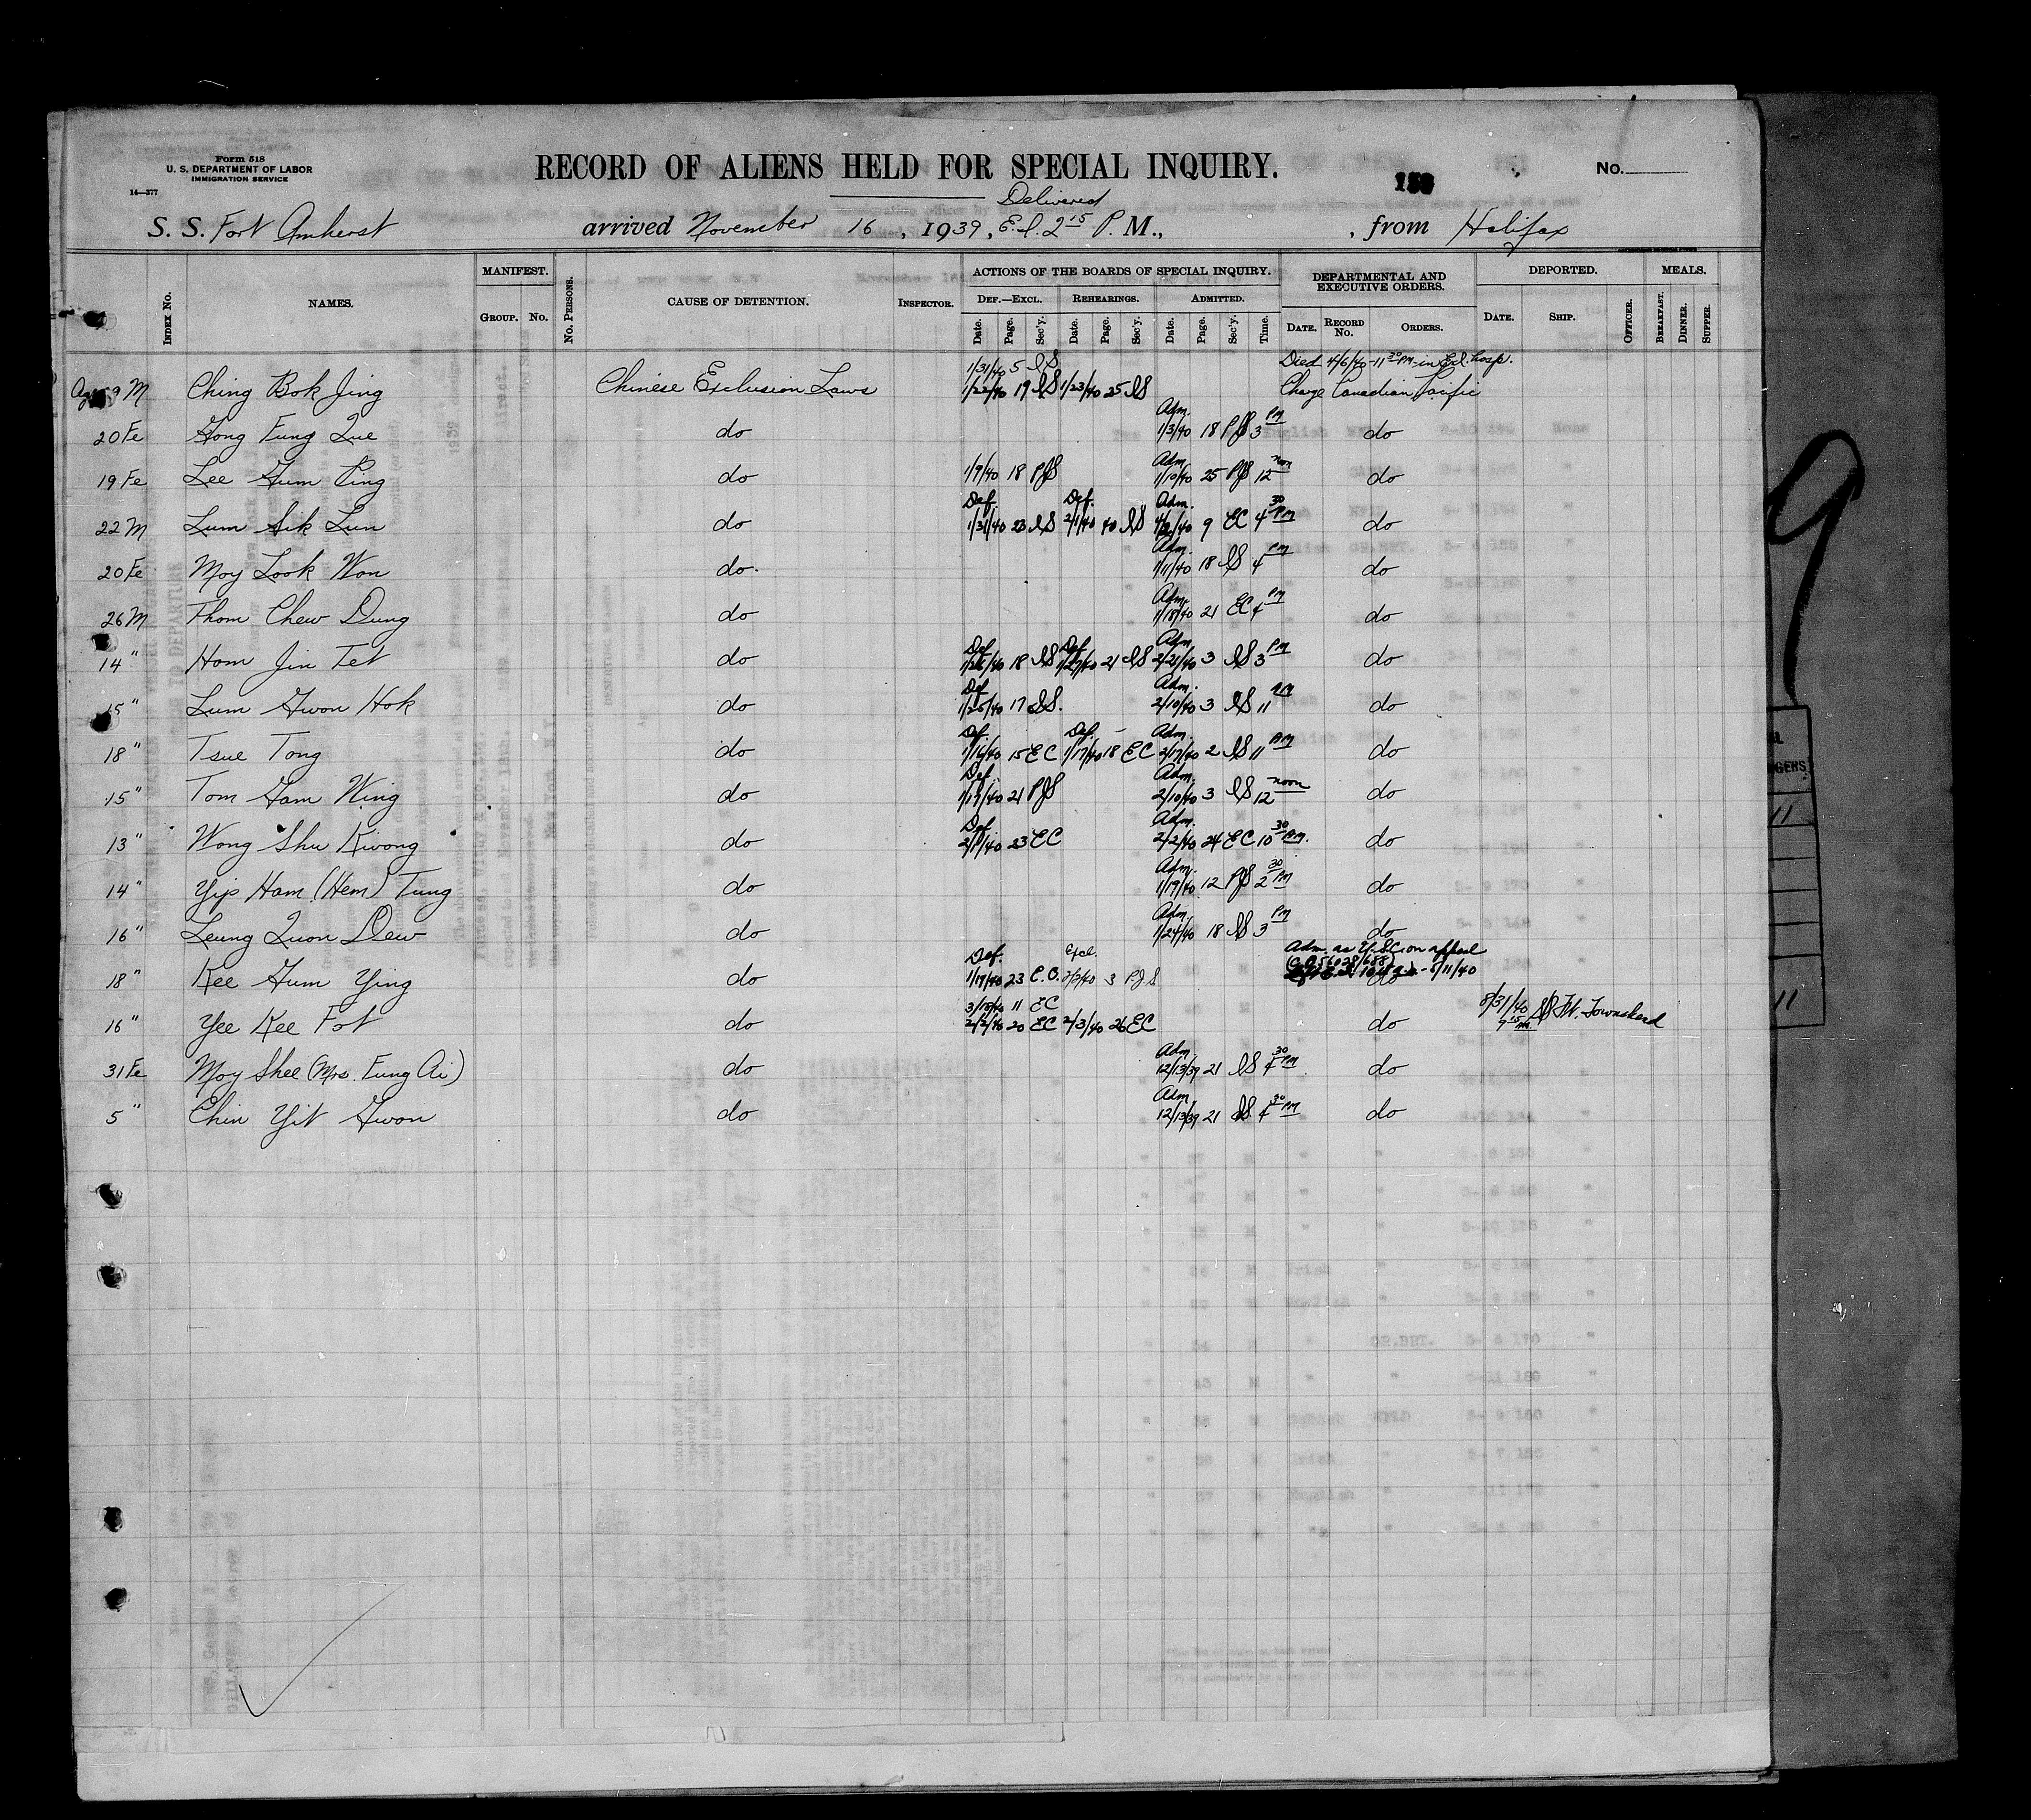 Form 518
U. S. DEPARTMENT OF LABOR
IMMIGRATION SERVICE
14—377
RECORD OF ALIENS HELD FOR SPECIAL INQUIRY.
No.
Delivered
S. S. Fort Amherst arrived November 16, 1939, E.I. 2 15 P. M., , from Halifax
INDEX No. NAMES. MANIFEST. GROUP. No. No. PERSONS. CAUSE OF DETENTION. INSPECTOR. ACTIONS OF THE BOARDS OF SPECIAL INQUIRY. DEPARTMENTAL AND EXECUTIVE ORDERS. DEPORTED. MEALS.
DEF.—EXCL. REHEARINGS. ADMITTED.
Date. Page. Sec'y. Date. Page. Sec'y. Date. Page. Sec'y. Time. DATE. RECORD No. ORDERS. DATE. SHIP. OFFICER. BREAKFAST. DINNER. SUPPER.
1/31/40 5 IS Died 4/6/40-11 30 PM-in E.I. hosp.
9 M Ching Bok Jing Chinese Exclusion Laws 1/22/40 19 IS 1/23/40 25 IS Charge Canadian Pacific
20 Fe Gong Fung Que do Adm. 1/3/40 18 PJS 3 PM do
19 Fe Lee Gum Ping do 1/9/40 18 PJS Adm. 1/10/40 25 PJS 12 noon do
22 M Lum Sik Lun do Def. 1/31/40 23 IS Def. 2/1/40 40 IS Adm. 9 EC 4 30 PM do
20 Fe Moy Look Won do. Adm. 1/11/40 18 IS 4 PM do
26 M Thom Chew Dung do Adm. 1/18/40 21 EC 4 PM do
14 " Hom Jin Tet do Def. 18 IS Def. 21 IS Adm. 2/21/40 3 IS 3 PM do
15 " Lum Gwon Hok do Def. 1/25/40 17 IS. Adm. 2/10/40 3 IS 11 AM do
18 " Tsue Tong do Def. 1/16/40 15 EC Def. 1/17/40 18 EC Adm. 2/17/40 2 IS 11 AM do
15 " Tom Gam Wing do Def. 21 PJS Adm. 2/10/40 3 IS 12 noon do
13 " Wong Shu Kwong do Def. 2/1/40 23 EC Adm. 2/2/40 24 EC 10 30 AM. do
14 " Yip Ham (Hem) Tung do Adm. 1/19/40 12 PJS 2 30 PM do
16 " Leung Quon Dew do Adm. 1/24/40 18 IS 3 PM do
Adm. as U.S.C. on appeal
(C.O. 56028/688)
18 " Kee Gum Ying do Def. 1/17/40 23 E.C. Excl. 3 P.J.S do 5/11/40
3/18/40 11 EC
16 " Yee Kee Fot do 2/2/40 20 EC 2/3/40 26 EC do 8/31/40 9 15 AM SS Ft. Townshend
31 Fe Moy Shee (Mrs. Fung Ai) do Adm. 12/13/39 21 IS 4 30 PM do
5 " Chin Yit Gwon do Adm. 12/13/39 21 IS 4 30 PM do
9
11
11